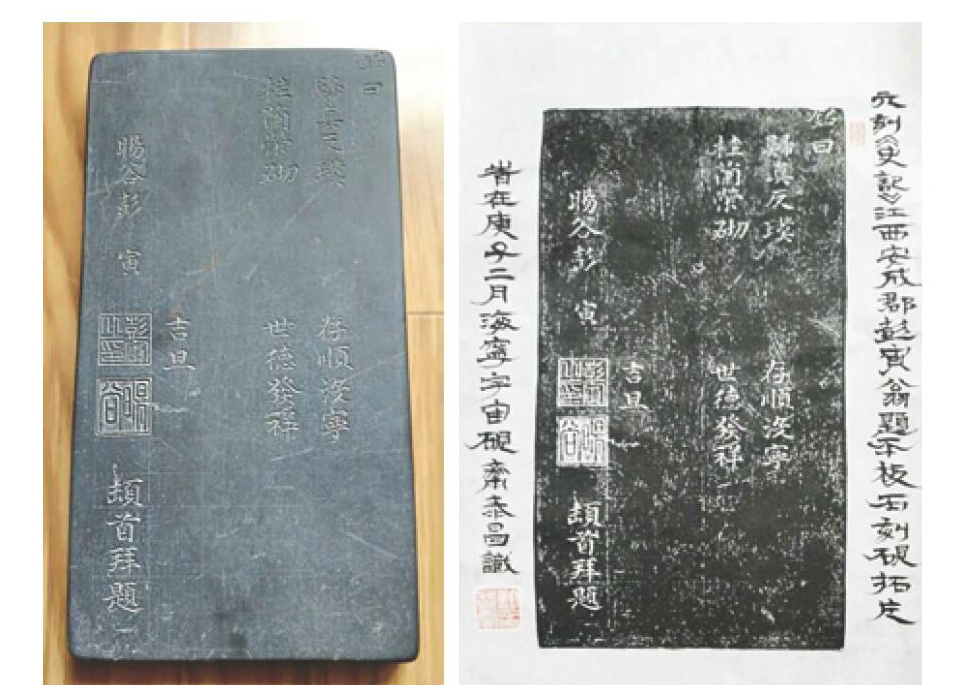 曰
反 存順沒寧
桂蘭砌 世德發祥
吉旦
暘谷彭 寅 頓首拜題
元刻《史記》江西安成郡彭寅翁題示板石刻硯拓片
曰
歸真反 存順沒寧
桂蘭砌 世德發祥
吉旦
暘谷彭 寅 頓首拜題
昔在庚子二月海寧宇宙硯齋泰昌識